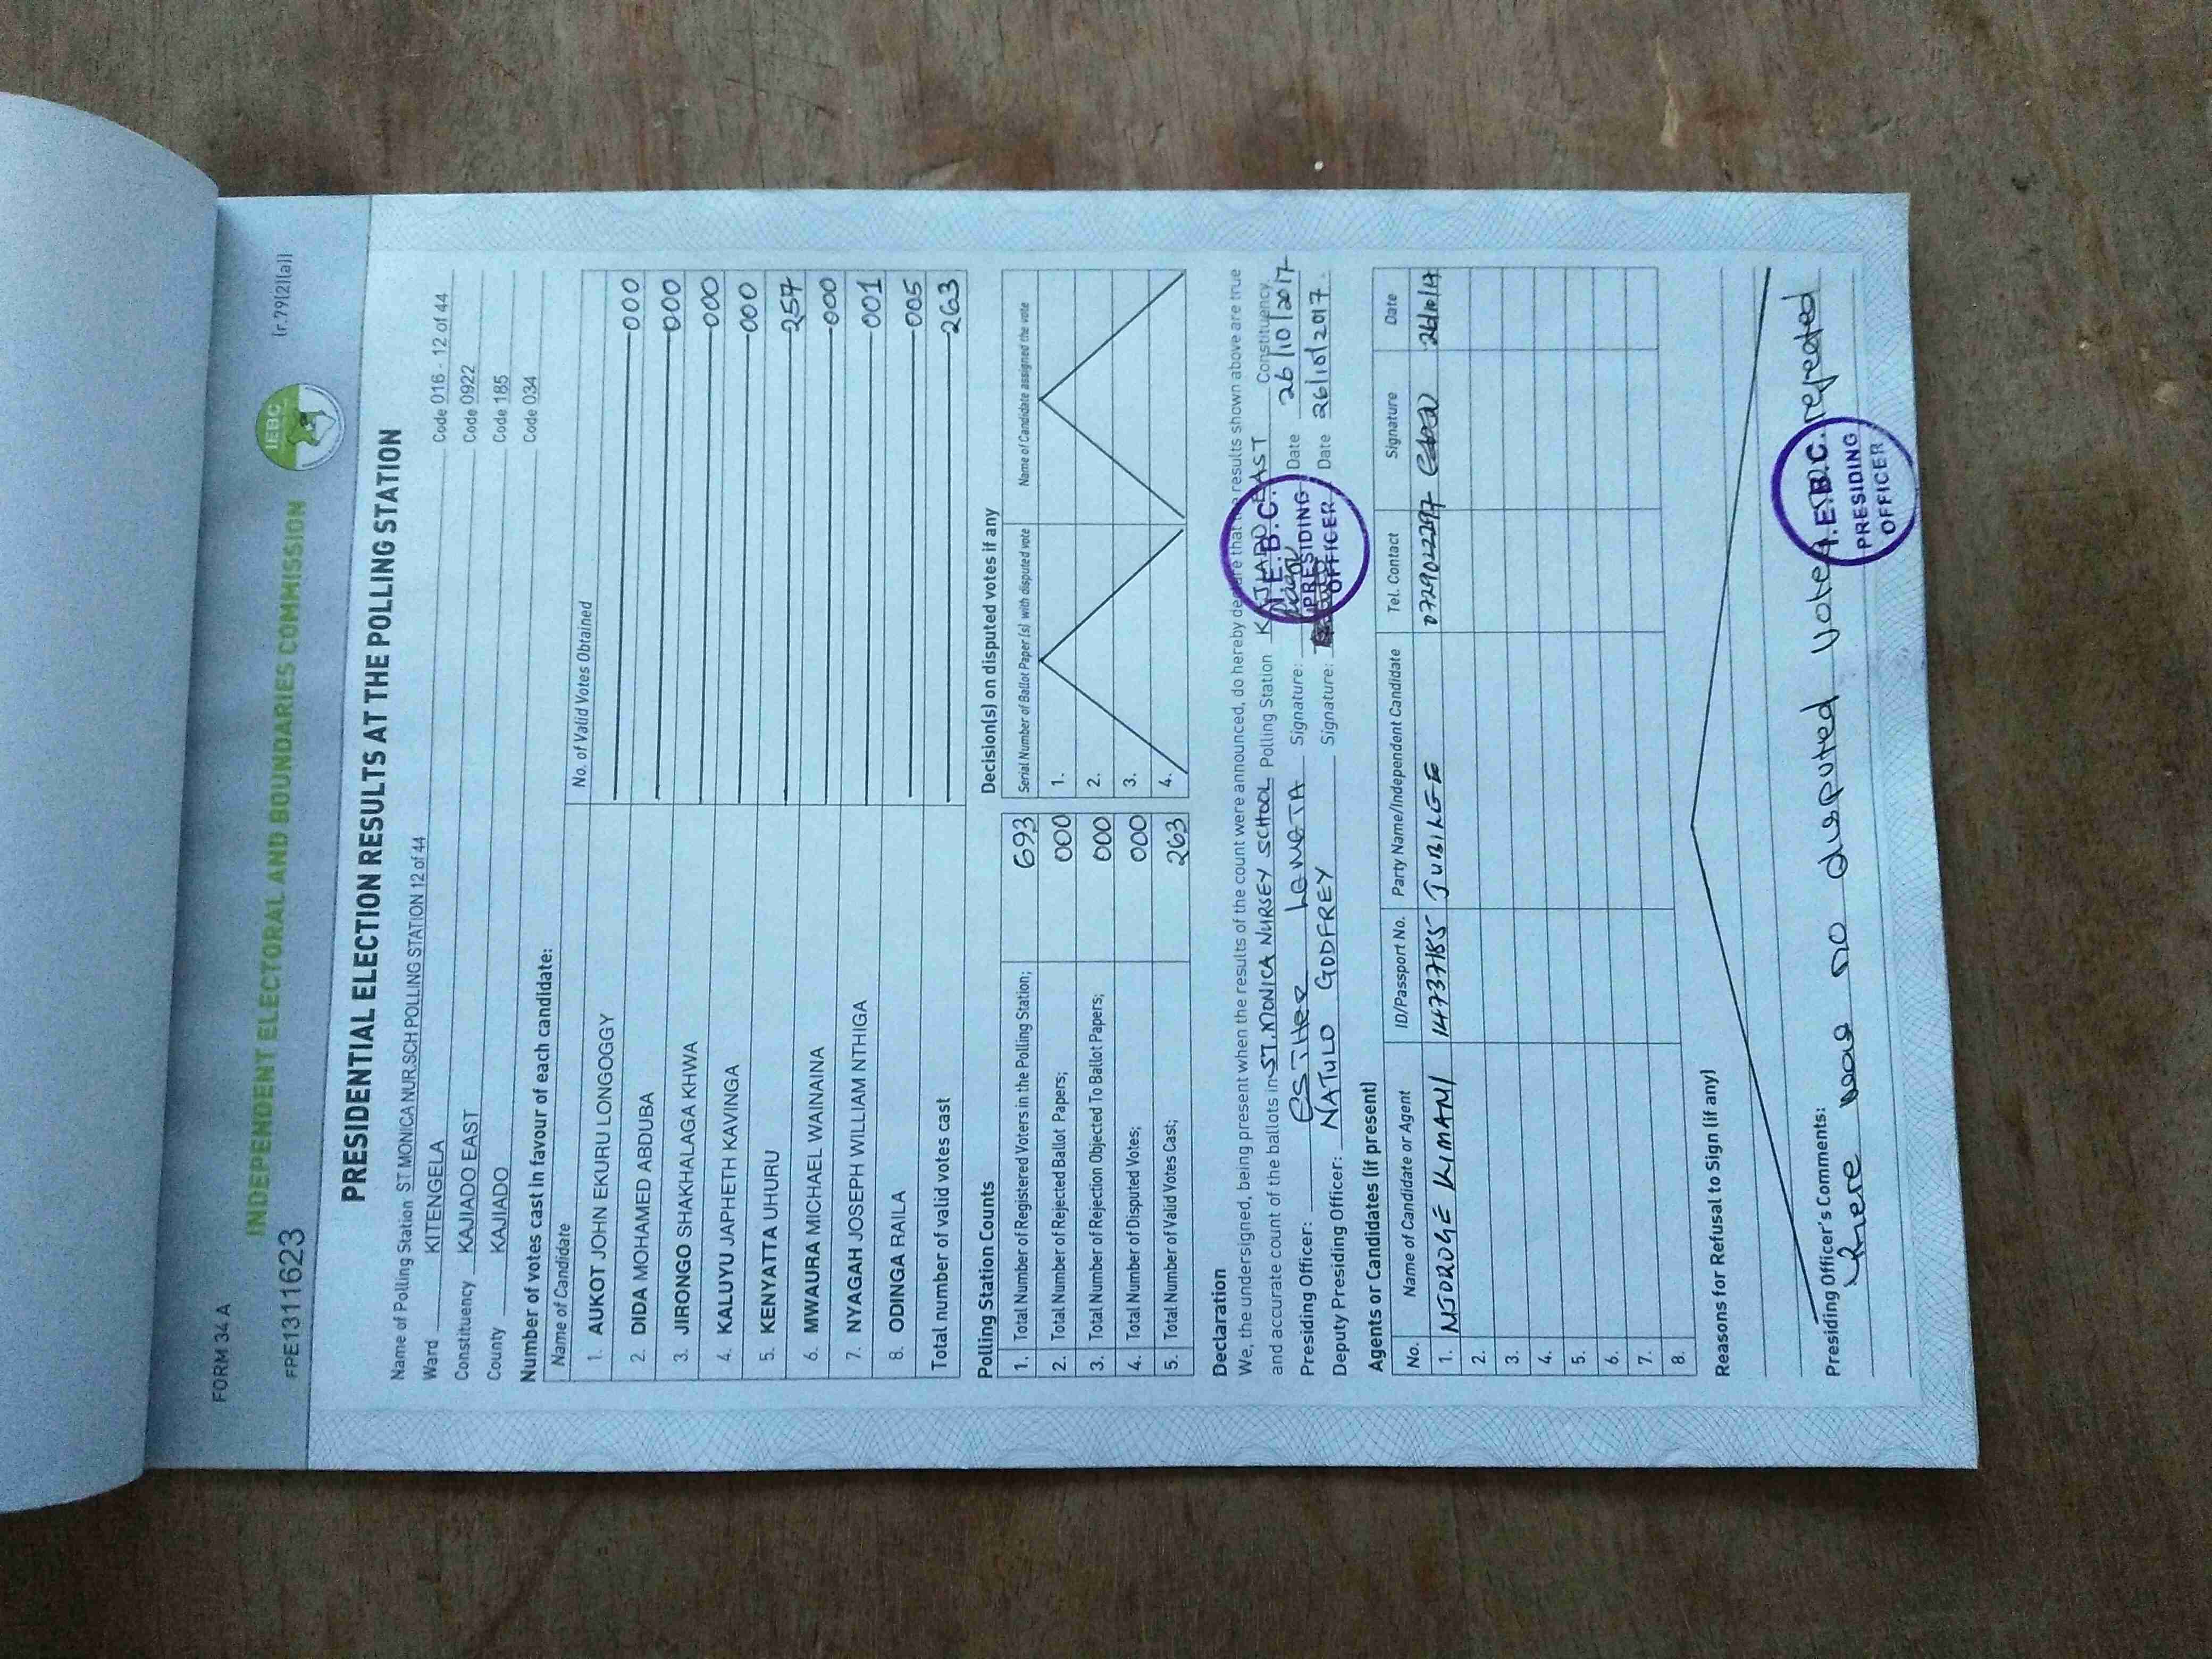 FORM 34 A
(r.79(2)(a))
INDEPENDENT ELECTORAL AND BOUNDARIES COMMISSION
IEBC
FPE13111623
PRESIDENTIAL ELECTION RESULTS AT THE POLLING STATION
Name of Polling Station ST.MONICA NUR.SCH POLLING STATION 12 of 44 Code 016 - 12 of 44
Ward KITENGELA Code 0922
Constituency KAJIADO EAST Code 185
County KAJIADO Code 034
Number of votes cast in favour of each candidate:
Name of Candidate No. of Valid Votes Obtained
1. AUKOT JOHN EKURU LONGOGGY 000
2. DIDA MOHAMED ABDUBA 000
3. JIRONGO SHAKHALAGA KHWA 000
4. KALUYU JAPHETH KAVINGA 000
5. KENYATTA UHURU 257
6. MWAURA MICHAEL WAINAINA 000
7. NYAGAH JOSEPH WILLIAM NTHIGA 001
8. ODINGA RAILA 005
Total number of valid votes cast 263
Polling Station Counts
1. Total Number of Registered Voters in the Polling Station; 693
2. Total Number of Rejected Ballot Papers; 000
3. Total Number of Rejection Objected To Ballot Papers; 000
4. Total Number of Disputed Votes; 000
5. Total Number of Valid Votes Cast; 263
Decision(s) on disputed votes if any
Serial Number of Ballot Paper(s) with disputed vote Name of Candidate assigned the vote
1.
2.
3.
4.
Declaration
We, the undersigned, being present when the results of the count were announced, do hereby declare that the results shown above are true
and accurate count of the ballots in ST. MONICA NURSEY SCHOOL Polling Station KAJIADO EAST Constituency.
Presiding Officer: ESTHER Signature: Date 26/10/2017
Deputy Presiding Officer: NATULO GODFREY Signature: Date 26/10/2017.
I.E.B.C. PRESIDING OFFICER
Agents or Candidates (if present)
No. Name of Candidate or Agent ID/Passport No. Party Name/Independent Candidate Tel. Contact Signature Date
1. NJOROGE KIMANI 14737185 JUBILEE 0729022297 26/10/17
2.
3.
4.
5.
6.
7.
8.
Reasons for Refusal to Sign (if any)
Presiding Officer's Comments:
there was no disputed vote rejected
I.E.B.C. PRESIDING OFFICER